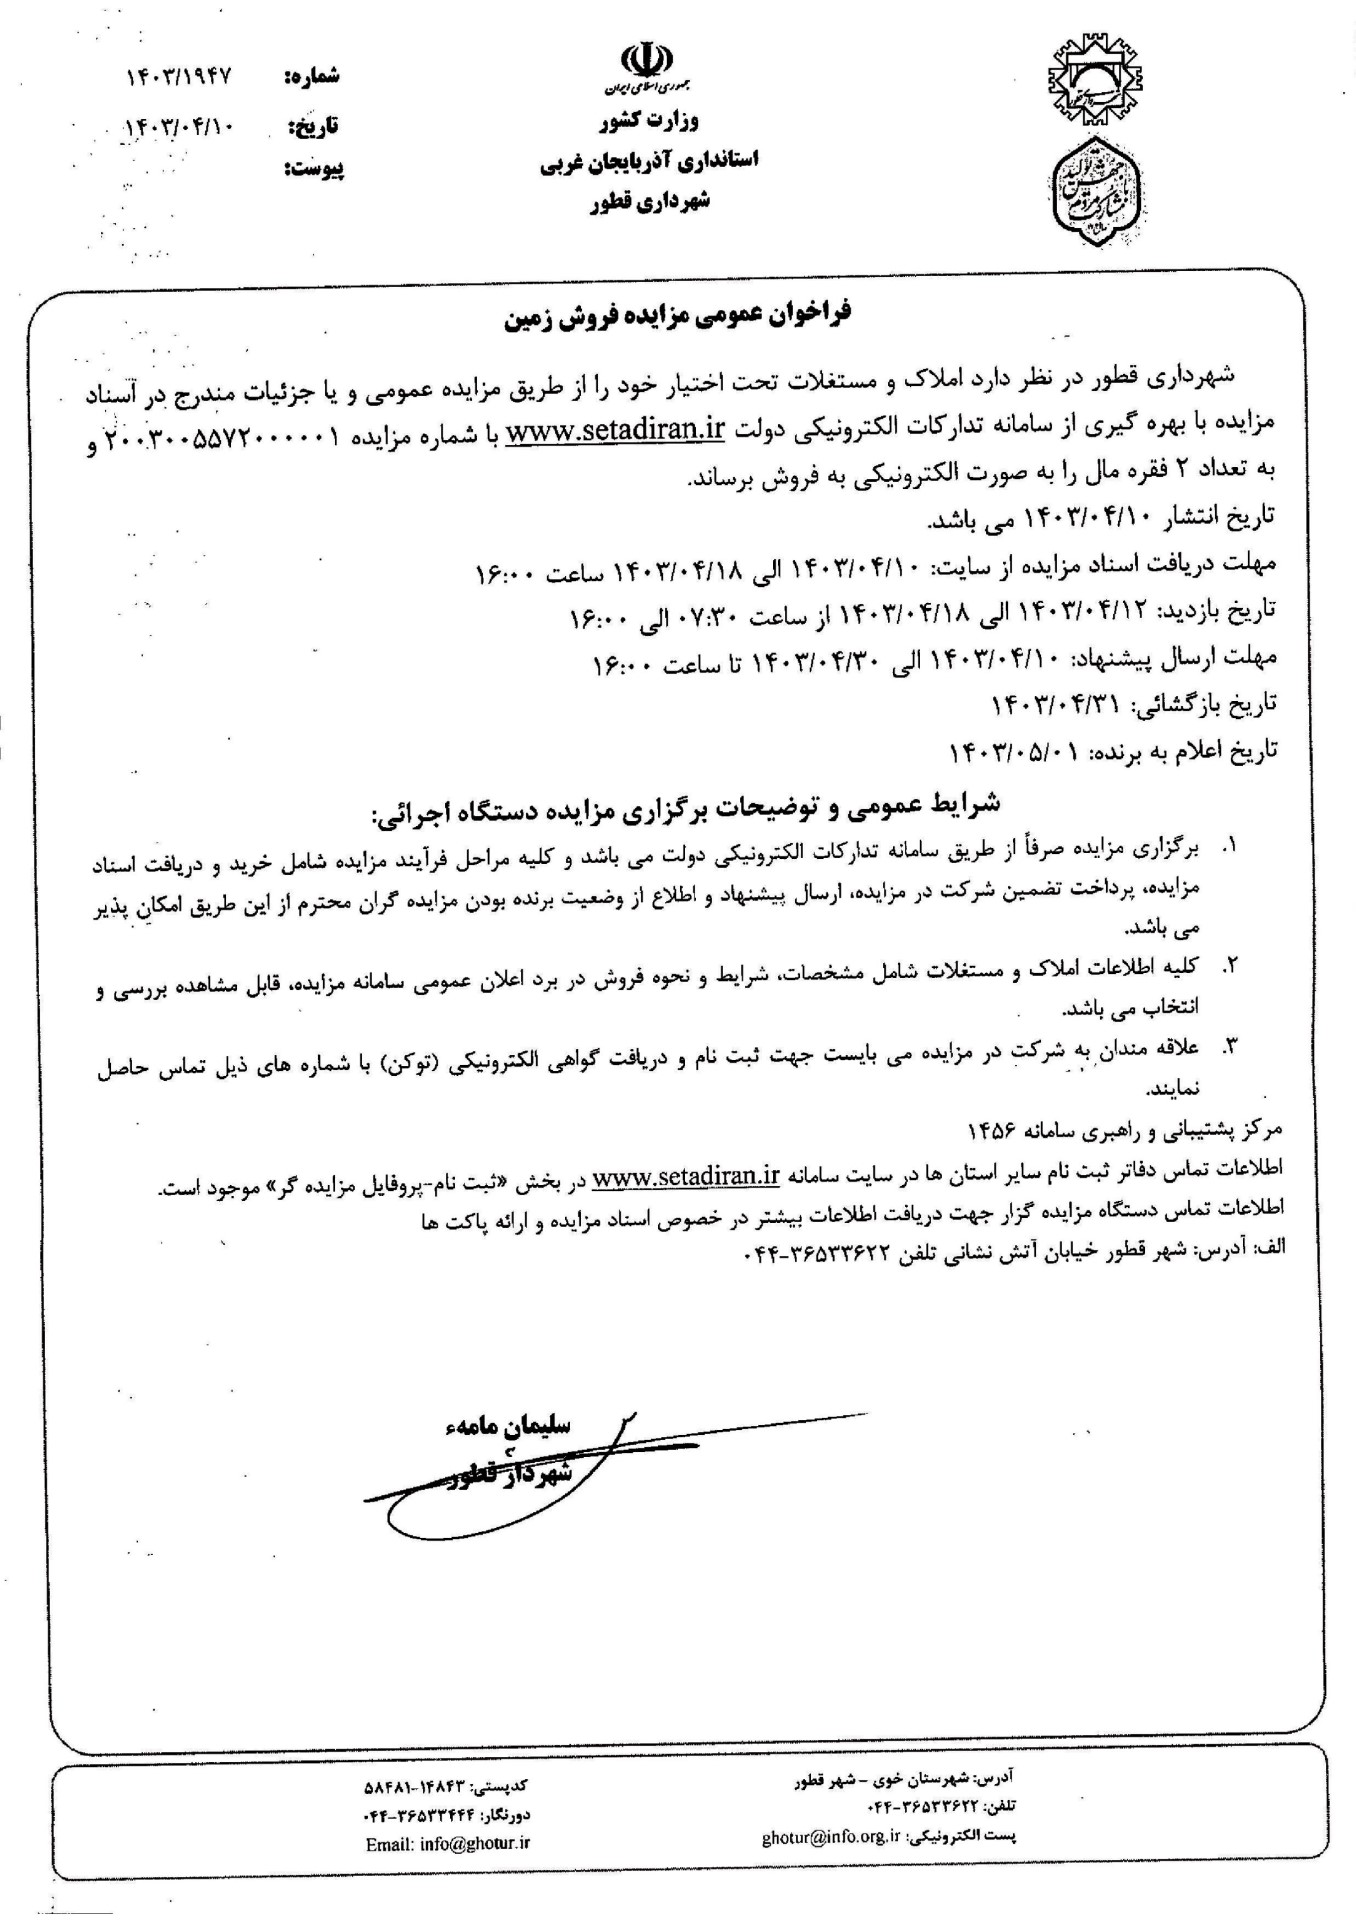 جمهوری اسلامی ایران
وزارت کشور
استانداری آذربایجان غربی
شهرداری قطور
شماره: ۱۴۰۳/۱۹۴۷
تاریخ: ۱۴۰۳/۰۴/۱۰
پیوست:
جهش تولید
با مشارکت مردم
فراخوان عمومی مزایده فروش زمین
شهرداری قطور در نظر دارد املاک و مستغلات تحت اختیار خود را از طریق مزایده عمومی و یا جزئیات مندرج در اسناد
مزایده با بهره گیری از سامانه تدارکات الکترونیکی دولت www.setadiran.ir با شماره مزایده ۲۰۰۳۰۰۵۵۷۲۰۰۰۰۰۱ و
به تعداد ۲ فقره مال را به صورت الکترونیکی به فروش برساند.
تاریخ انتشار ۱۴۰۳/۰۴/۱۰ می باشد.
مهلت دریافت اسناد مزایده از سایت: ۱۴۰۳/۰۴/۱۰ الی ۱۴۰۳/۰۴/۱۸ ساعت ۱۶:۰۰
تاریخ بازدید: ۱۴۰۳/۰۴/۱۲ الی ۱۴۰۳/۰۴/۱۸ از ساعت ۰۷:۳۰ الی ۱۶:۰۰
مهلت ارسال پیشنهاد: ۱۴۰۳/۰۴/۱۰ الی ۱۴۰۳/۰۴/۳۰ تا ساعت ۱۶:۰۰
تاریخ بازگشائی: ۱۴۰۳/۰۴/۳۱
تاریخ اعلام به برنده: ۱۴۰۳/۰۵/۰۱
شرایط عمومی و توضیحات برگزاری مزایده دستگاه اجرائی:
۱. برگزاری مزایده صرفاً از طریق سامانه تدارکات الکترونیکی دولت می باشد و کلیه مراحل فرآیند مزایده شامل خرید و دریافت اسناد
مزایده، پرداخت تضمین شرکت در مزایده، ارسال پیشنهاد و اطلاع از وضعیت برنده بودن مزایده گران محترم از این طریق امکان پذیر
می باشد.
۲. کلیه اطلاعات املاک و مستغلات شامل مشخصات، شرایط و نحوه فروش در برد اعلان عمومی سامانه مزایده، قابل مشاهده بررسی و
انتخاب می باشد.
۳. علاقه مندان به شرکت در مزایده می بایست جهت ثبت نام و دریافت گواهی الکترونیکی (توکن) با شماره های ذیل تماس حاصل
نمایند.
مرکز پشتیبانی و راهبری سامانه ۱۴۵۶
اطلاعات تماس دفاتر ثبت نام سایر استان ها در سایت سامانه www.setadiran.ir در بخش «ثبت نام-پروفایل مزایده گر» موجود است.
اطلاعات تماس دستگاه مزایده گزار جهت دریافت اطلاعات بیشتر در خصوص اسناد مزایده و ارائه پاکت ها
الف: آدرس: شهر قطور خیابان آتش نشانی تلفن ۳۶۵۳۳۶۲۲-۰۴۴
سلیمان مامهء
شهردار قطور
آدرس: شهرستان خوی – شهر قطور
تلفن: ۳۶۵۳۳۶۲۲-۰۴۴
پست الکترونیکی: ghotur@info.org.ir
کدپستی: ۱۴۸۴۳-۵۸۴۸۱
دورنگار: ۳۶۵۳۳۴۴۴-۰۴۴
Email: info@ghotur.ir